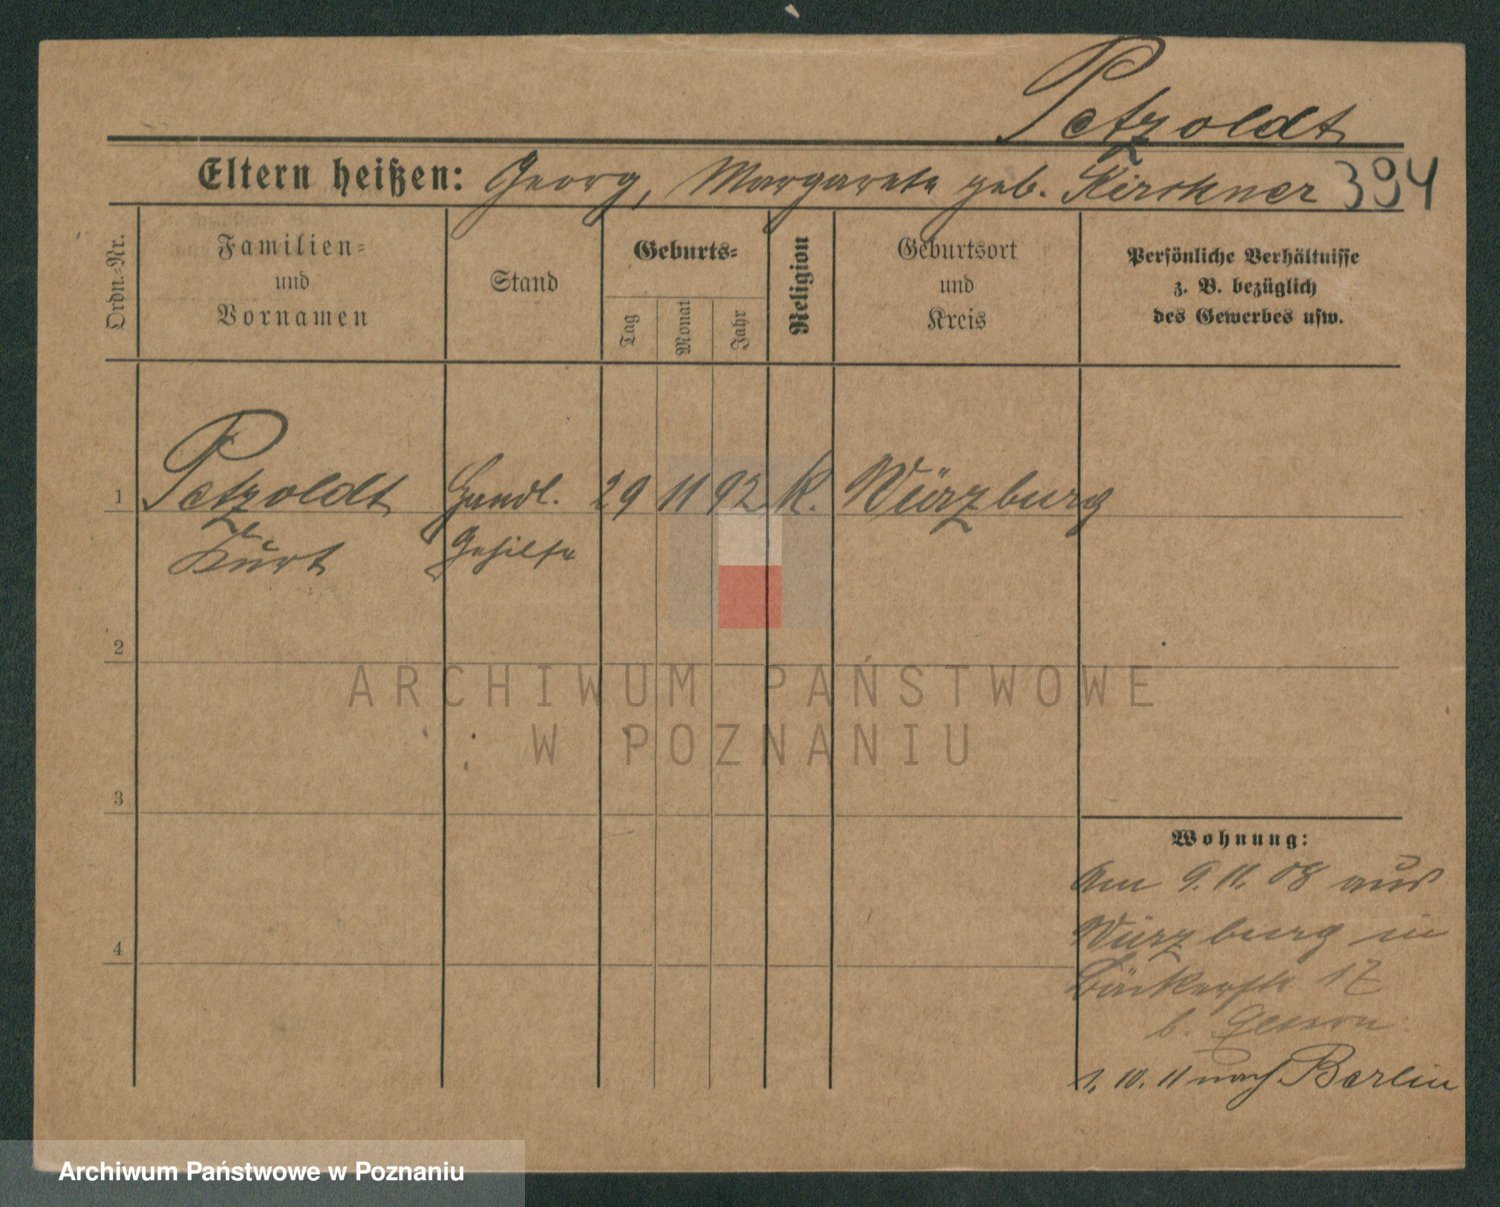 Petzoldt
Eltern heißen: Georg, Margarete geb. Kirchner 394
Ordn.=Nr.
Familien=
und
Vornamen
Stand
Geburts=
Tag
Monat
Jahr
Religion
Geburtsort
und
Kreis
Persönliche Verhältnisse
z. B. bezüglich
des Gewerbes usw.
1 Petzoldt Handl. 29 11 92 K. Würzburg
Kurt Gehilfe
2
ARCHIWUM PAŃSTWOWE
W POZNANIU
3
Wohnung:
Am 9. 11. 08 aus
4 Würzburg in
Bäckerstr 17
b.
1. 10. 11 nach Berlin
Archiwum Państwowe w Poznaniu